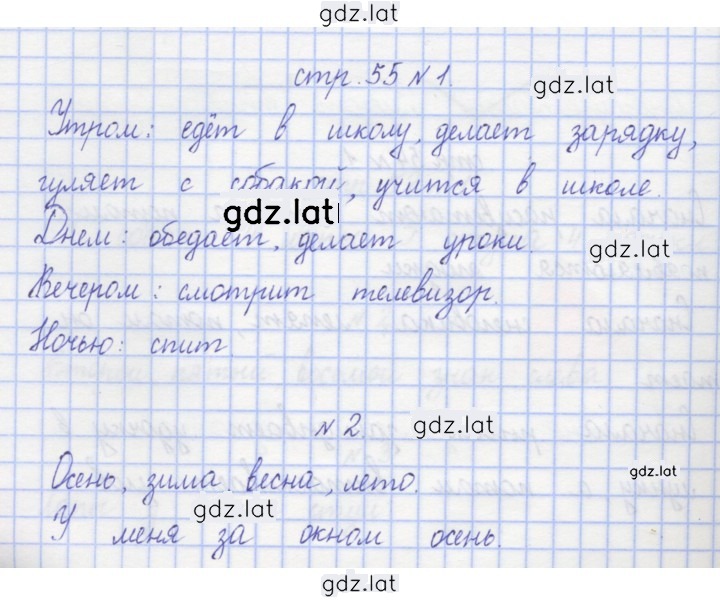 gdz.lat
стр. 55 № 1.
gdz.lat
Утром: едёт в школу, делает зарядку,
гуляет с собакой, учится в школе.
gdz.lat
Днем: обедает, делает уроки.
gdz.lat
Вечером: смотрит телевизор.
Ночью: спит.
№ 2.
gdz.lat
Осень, зима весна, лето.
gdz.lat
gdz.lat
У меня за окном осень.
gdz.lat